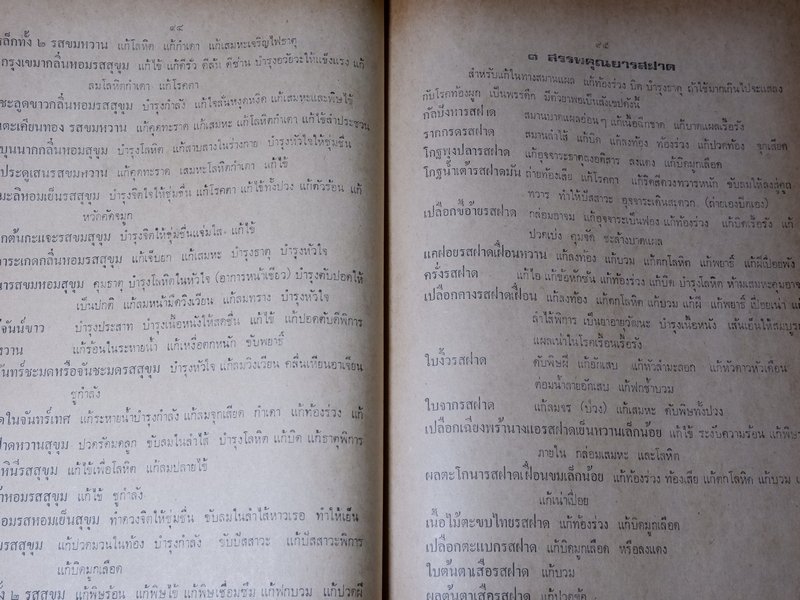 ๙๔
ล็กทั้ง ๒ รสขมหวาน แก้โลหิต แก้กำเดา แก้เสมหะเจริญไฟธาตุ
กรุงเขมากลิ่นหอมรสสุขุม แก้ไข้ แก้ดีรั่ว ดีล้น ดีซ่าน บำรุงอวัยวะให้แข็งแรง แก้
ลมโลหิตกำเดา แก้โรคตา
ชะลูดขาวกลิ่นหอมรสสุขุม บำรุงกำลัง แก้ใจสั่นหงุดหงิด แก้เสมหะและพิษไข้
ตะเคียนทอง รสขมหวาน แก้คุดทะราด แก้เสมหะ แก้โลหิตกำเดา แก้ไข้สำประชวน
บุนนากกลิ่นหอมสุขุม บำรุงโลหิต แก้สาบสางในร่างกาย บำรุงหัวใจให้ชุ่มชื่น
ประดู่เสนรสขม แก้คุดทะราด เสมหะโลหิตกำเดา แก้ไข้
มะลิหอมเย็นรสสุขุม บำรุงจิตใจให้ชุ่มชื่น แก้โรคตา แก้ไข้ทั้งปวง แก้ตัวร้อน แก้
หวัดคัดจมูก
กต้นกะแจะรสขมสุขุม บำรุงจิตให้ชุ่มชื่นแจ่มใส แก้ไข้
การะเกดกลิ่นหอมรสสุขุม แก้เจ็บอก แก้เสมหะ บำรุงธาตุ บำรุงหัวใจ
รสขมหอมสุขุม คุมธาตุ บำรุงโลหิตในหัวใจ (อาการหน้าเขียว) บำรุงตับปอดให้
เป็นปกติ แก้ลมหน้ามืดวิงเวียน แก้ลมทราง บำรุงหัวใจ
จันน์ขาว บำรุงประสาท บำรุงเนื้อหนังให้สดชื่น แก้ไข้ แก้ปอดตับพิการ
รวาน แก้ร้อนในระหายน้ำ แก้เหงื่อตกหนัก ขับพยาธิ์
ันทร์ชะมดหรือจันชะมดรสสุขุม บำรุงหัวใจ แก้ลมวิงเวียน คลื่นเหียนอาเจียน
ชูกำลัง
ดในจันทร์เทศ แก้ระหายน้ำบำรุงกำลัง แก้ลมจุกเลือด กำเดา แก้ท้องร่วง แก้
ฝาดหวานสุขุม ปวดรัดมดลูก ขับลมในลำไส้ บำรุงโลหิต แก้บิด แก้ธาตุพิการ
รสสุขุม แก้ไข้เพื่อโลหิต แก้ลมปลายไข้
หอมรสสุขุม แก้ไข้ ชูกำลัง
อมรสหอมเย็นสุขุม ทำดวงจิตให้ชุ่มชื่น ขับลมในลำไส้หาวเรอ ทำให้เย็น
รสสุขุม แก้ปวดมวนในท้อง บำรุงกำลัง ขับปัสสาวะ แก้ปัสสาวะพิการ
แก้บิดมูกเลือด
๒ รสสุขุม แก้พิษร้อน แก้พิษไข้ แก้พิษเชื่อมซึม แก้ฟกบวม แก้ปวดฝี
๙๕
๓ สรรพคุณยารสฝาด
สำหรับแก้ในทางสมานแผล แก้ท้องร่วง บิด บำรุงธาตุ ถ้าใช้มากเกินไปจะแสลง
กับโรคท้องผูก เป็นพรรดึก มีตัวยาพอเป็นสังเขปดังนี้
กัลปังหารสฝาด สมานบาดแผลอ่อน ๆ แก้เนื้อฉีกขาด แก้บาดแผลเรื้อรัง
รากกรดรสฝาด สมานลำไส้ แก้บิด แก้ลงท้อง ท้องร่วง แก้ปวดท้อง จุกเสียด
โกฐพุงปลารสฝาด แก้อุจจาระธาตุลงอติสาร ลงแดง แก้บิดมูกเลือด
โกฐน้ำเต้ารสฝาดมัน ถ่ายท้องเสีย แก้โรคตา แก้ริดสีดวงทวารหนัก ขับลมให้ลงสู่คูถ
ทวาร ทำให้ปัสสาวะ อุจจาระเดินสะดวก. (ถ่ายเองปิดเอง)
เปลือกขี้อ้ายรสฝาด กล่อมอาจม แก้อุจจาระเป็นฟอง แก้ท้องร่วง แก้บิดเรื้อรัง แก้
ปวดเบ่ง คุมธัตุ ชะล้างบาดแผล
แคฝอยรสฝาดเฝื่อนหวาน แก้ลงท้อง แก้บวม แก้ตกโลหิต แก้พยาธิ์ แก้ฝีเปื่อยพัง
ครั่งรสฝาด แก้ไอ แก้ข้อหักซ้น แก้ท้องร่วง แก้บิด บำรุงโลหิต ห้ามเสมหะคุมอาจ
เปลือกคางรสฝาดเฝื่อน แก้ลงท้อง แก้ตกโลหิต แก้บวม แก้ฝี แก้พยาธิ์ เปื่อยเน่า แก้
ลำไส้พิการ เป็นยาอายุวัฒนะ บำรุงเนื้อหนัง เส้นเอ็นให้สมบูร
แผลเน่าในโรคเรื้อนเรื้อรัง
ใบงิ้วรสฝาด ดับพิษฝี แก้อักเสบ แก้หัวลำมะลอก แก้หัวดาวหัวเดือน
ต่อมน้ำลายอักเสบ แก้ฟกช้ำบวม
ใบจากรสฝาด แก้ลมจร (ป่วง) แก้เสมหะ ดับพิษทั้งปวง
เปลือกเฉียงพร้านางแอรสฝาดเย็นหวานเล็กน้อย แก้ไข้ ระงับความร้อน แก้พิษ
ภายใน กล่อมเสมหะ และโลหิต
ผลตะโกนารสฝาดเฝื่อนขมเล็กน้อย แก้ท้องร่วง ท้องเสีย แก้ตกโลหิต แก้บวม
แก้เน่าเปื่อย
เนื้อไม้ตะขบไทยรสฝาด แก้ท้องร่วง แก้บิดมูกเลือด
เปลือกตะแบกรสฝาด แก้บิดมูกเลือด หรือลงแดง
ใบต้นตาเสือรสฝาด แก้บวม
ผลต้นตาเสือรสฝาด แก้ปวดข้อ